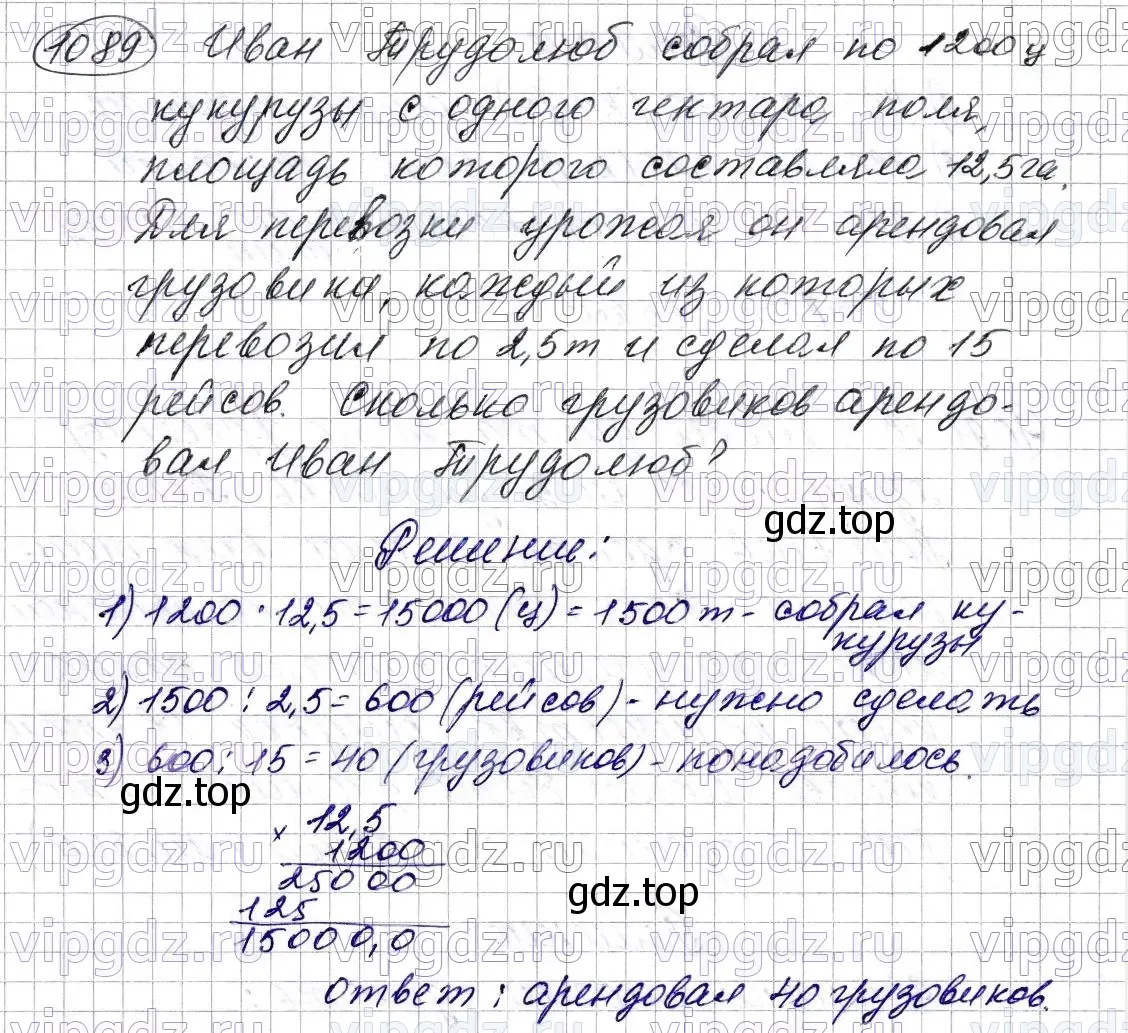 1089 Иван Трудолюб собрал по 1200 ц
кукурузы с одного гектара поля,
площадь которого составляла 12,5 га.
Для перевозки урожая он арендовал
грузовики, каждый из которых
перевозил по 2,5 т и сделал по 15
рейсов. Сколько грузовиков арендо-
вал Иван Трудолюб?
gdz.top
Решение:
1) 1200 · 12,5 = 15000 (ц) = 1500 т - собрал ку-
курузы
2) 1500 : 2,5 = 600 (рейсов) - нужно сделать
3) 600 : 15 = 40 (грузовиков) - понадобилось.
gdz.top
× 12,5
1200
250 00
gdz.top
125
15000,0
ответ: арендовал 40 грузовиков.
vipgdz.ru